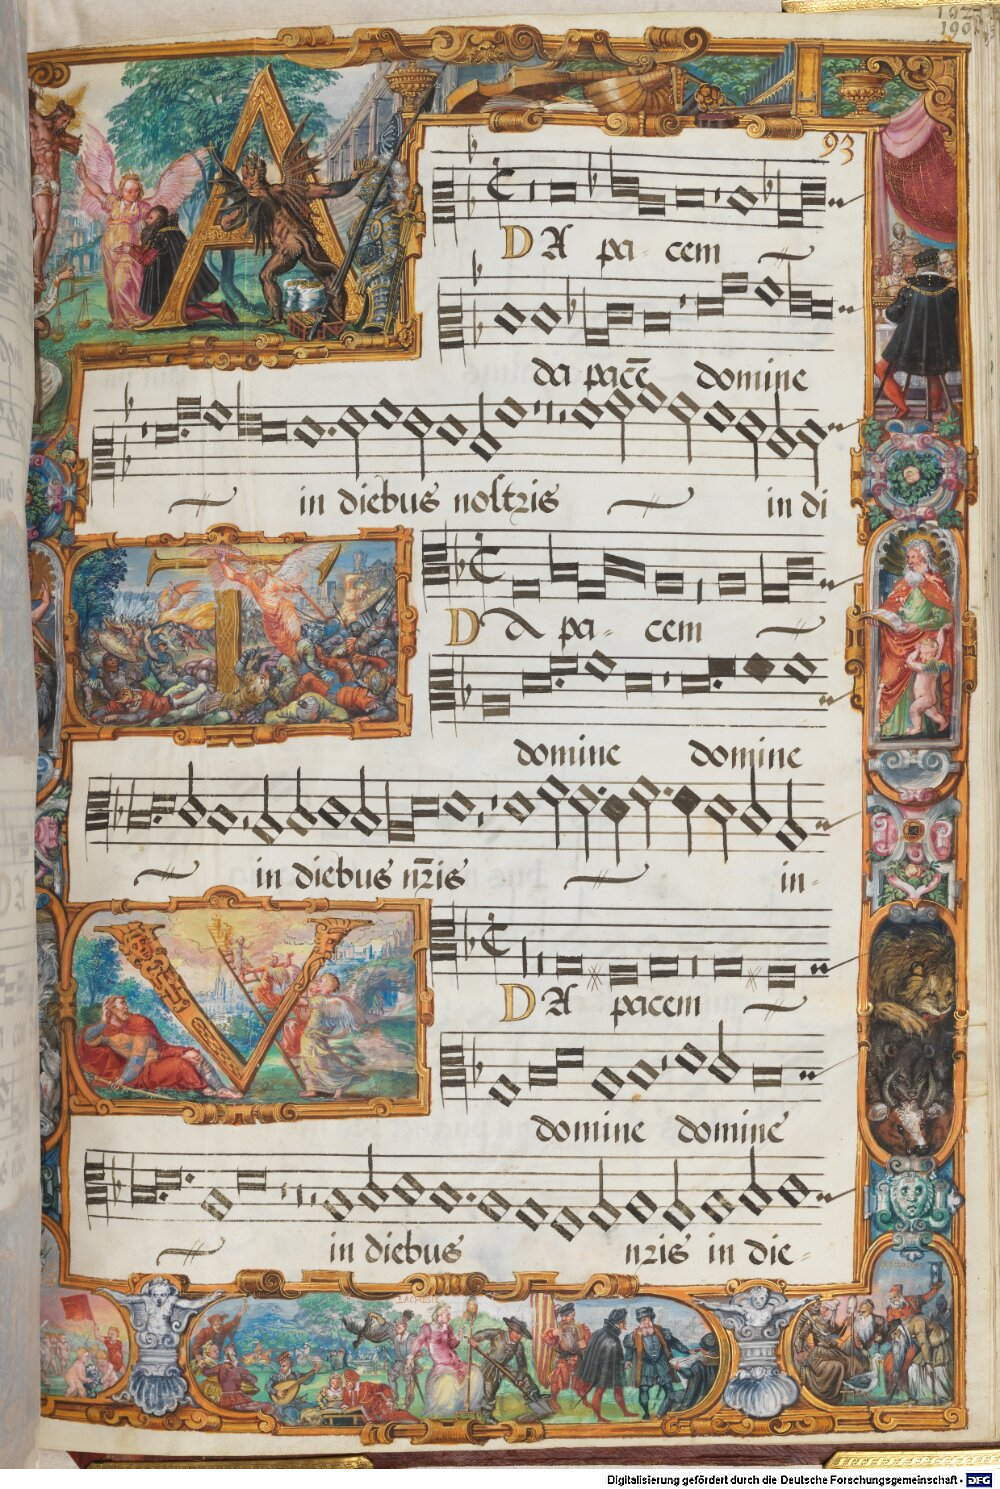 93
A
DA pa- cem
da pacē domine
in diebus nostris in di
T
DA pa- cem
domine domine
in diebus nr̄is in-
V
DA pacem
domine domine
in diebus nr̄is in die-
Digitalisierung gefördert durch die Deutsche Forschungsgemeinschaft - DFG